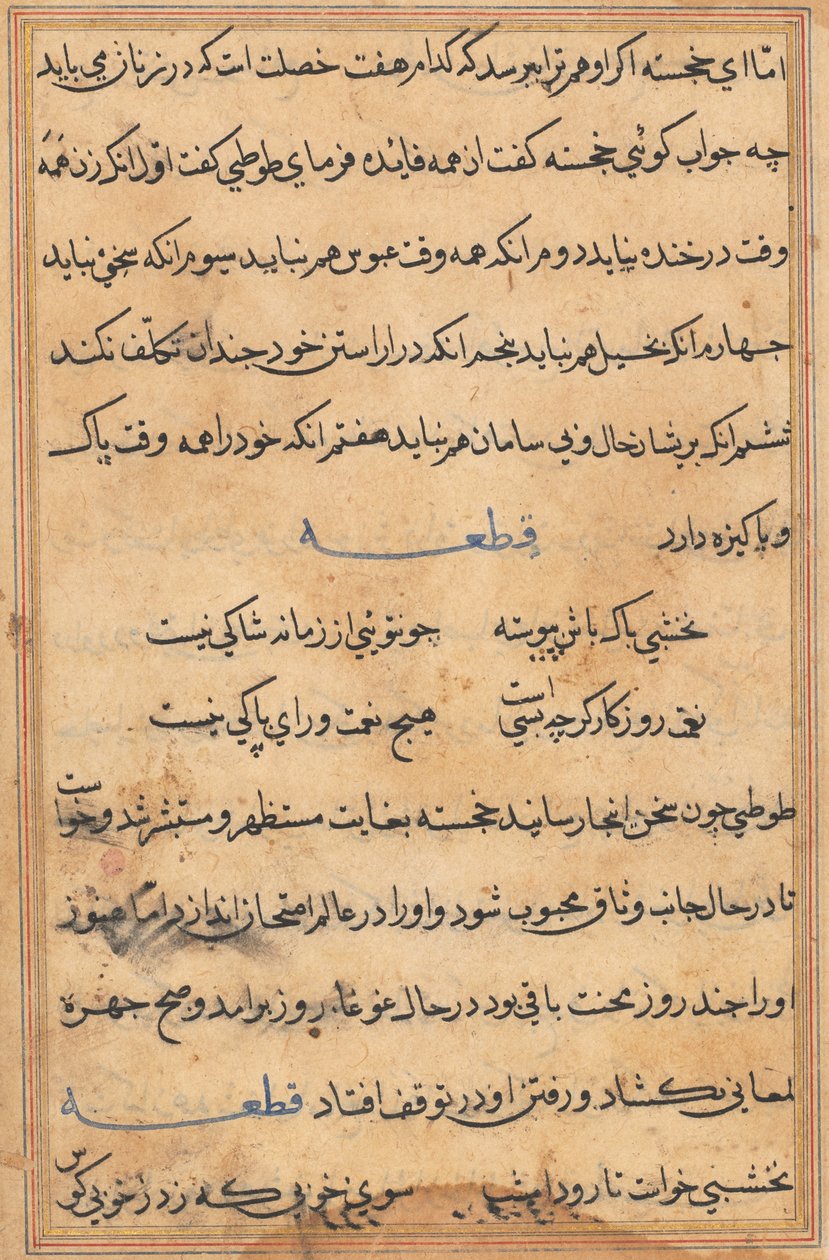 امّا ای خجسته اکر او هم ترا بپرسد که کدام هفت خصلت است که در زنان می باید
چه جواب کوئی خجسته کفت ان همه فایده فرمای طوطی کفت اوّل انکه زن همه
وقت در خنده نباید دوم انکه همه وقت عبوس هم نباید سیوم انکه سخی نباید
جهارم انکه بخیل هم نباید بنجم انکه در اراستن خود جندان تکلّف نکند
ششم انکه بریشان حال و بی سامان هم نباید هفتم انکه خود را همه وقت پاک
و پاکیزه دارد قطعه
نخشبی باک باش پیوسته جو توئی از زمانه شاکی نیست
نعمت روزکار کرجه بسی است هیج نعمت ورای پاکی نیست
طوطی جون سخن اینجا رسانید خجسته بغایت مستظهر و مستبشر شد و خواست
تا در حال جانب وثاق محبوب شود و او را در عالم امتحان اندازد امّا هنوز
او را جند روز محنت باقی بود در حال غوغاء روز برامد و صبح جهره
لمعانی بکشاد و رفتن او در توقف افتاد قطعه
نخشبی خواست تا رود امشب سوی خوبی که زد ز خوبی کوس